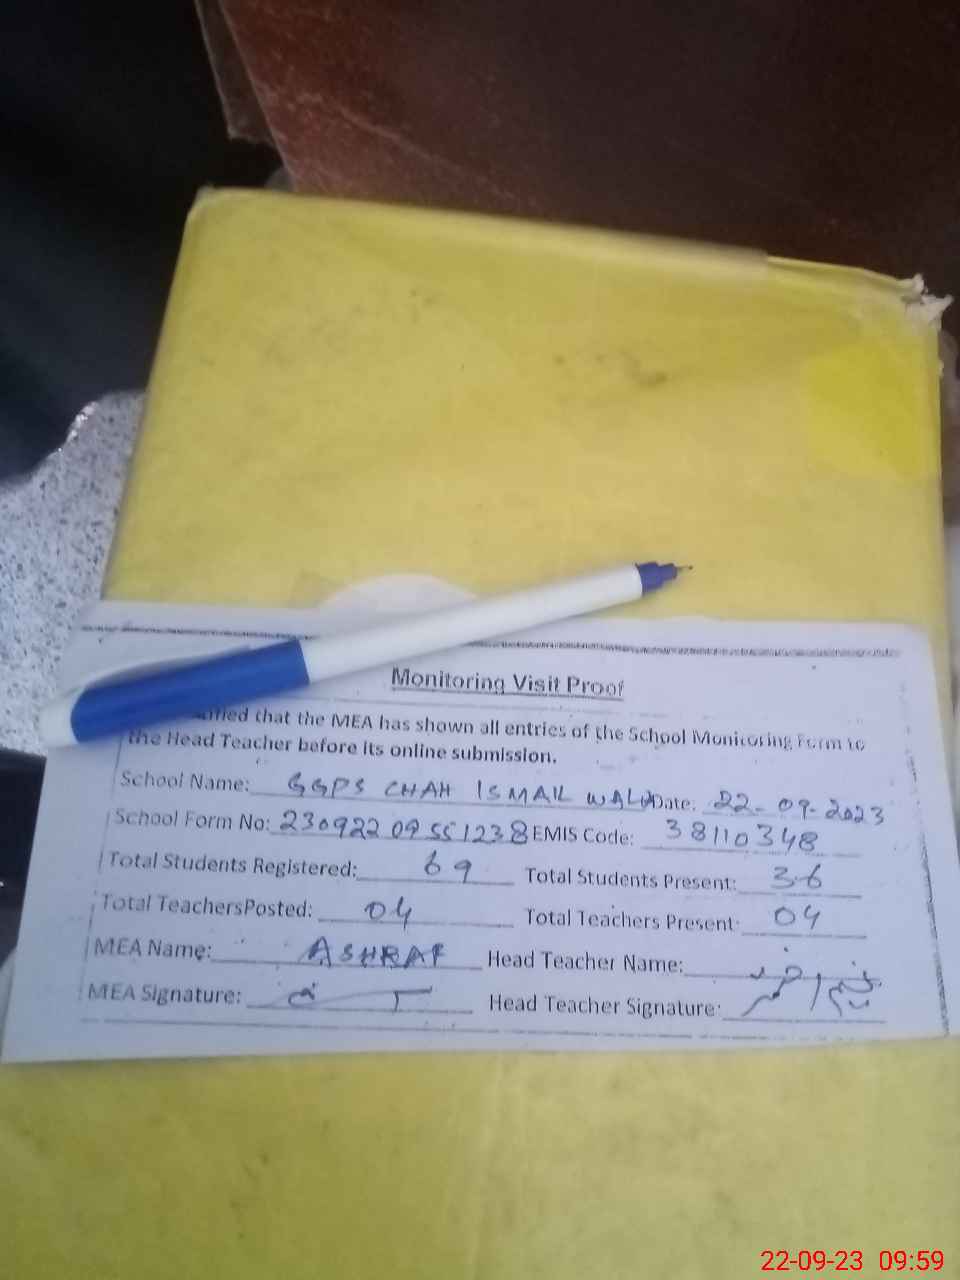 Monitoring Visit Proof
that the MEA has shown all entries of the School Monitoring Form to
the Head Teacher before its online submission.
School Name: GGPS CHAH ISMAIL WALA Date: 22-09-2023
School Form No: 230922 09551238 EMIS Code: 38110348
Total Students Registered: 69 Total Students Present: 36
Total TeachersPosted: 04 Total Teachers Present: 04
MEA Name: ASHRAF Head Teacher Name:
MEA Signature: Head Teacher Signature:
22-09-23 09:59